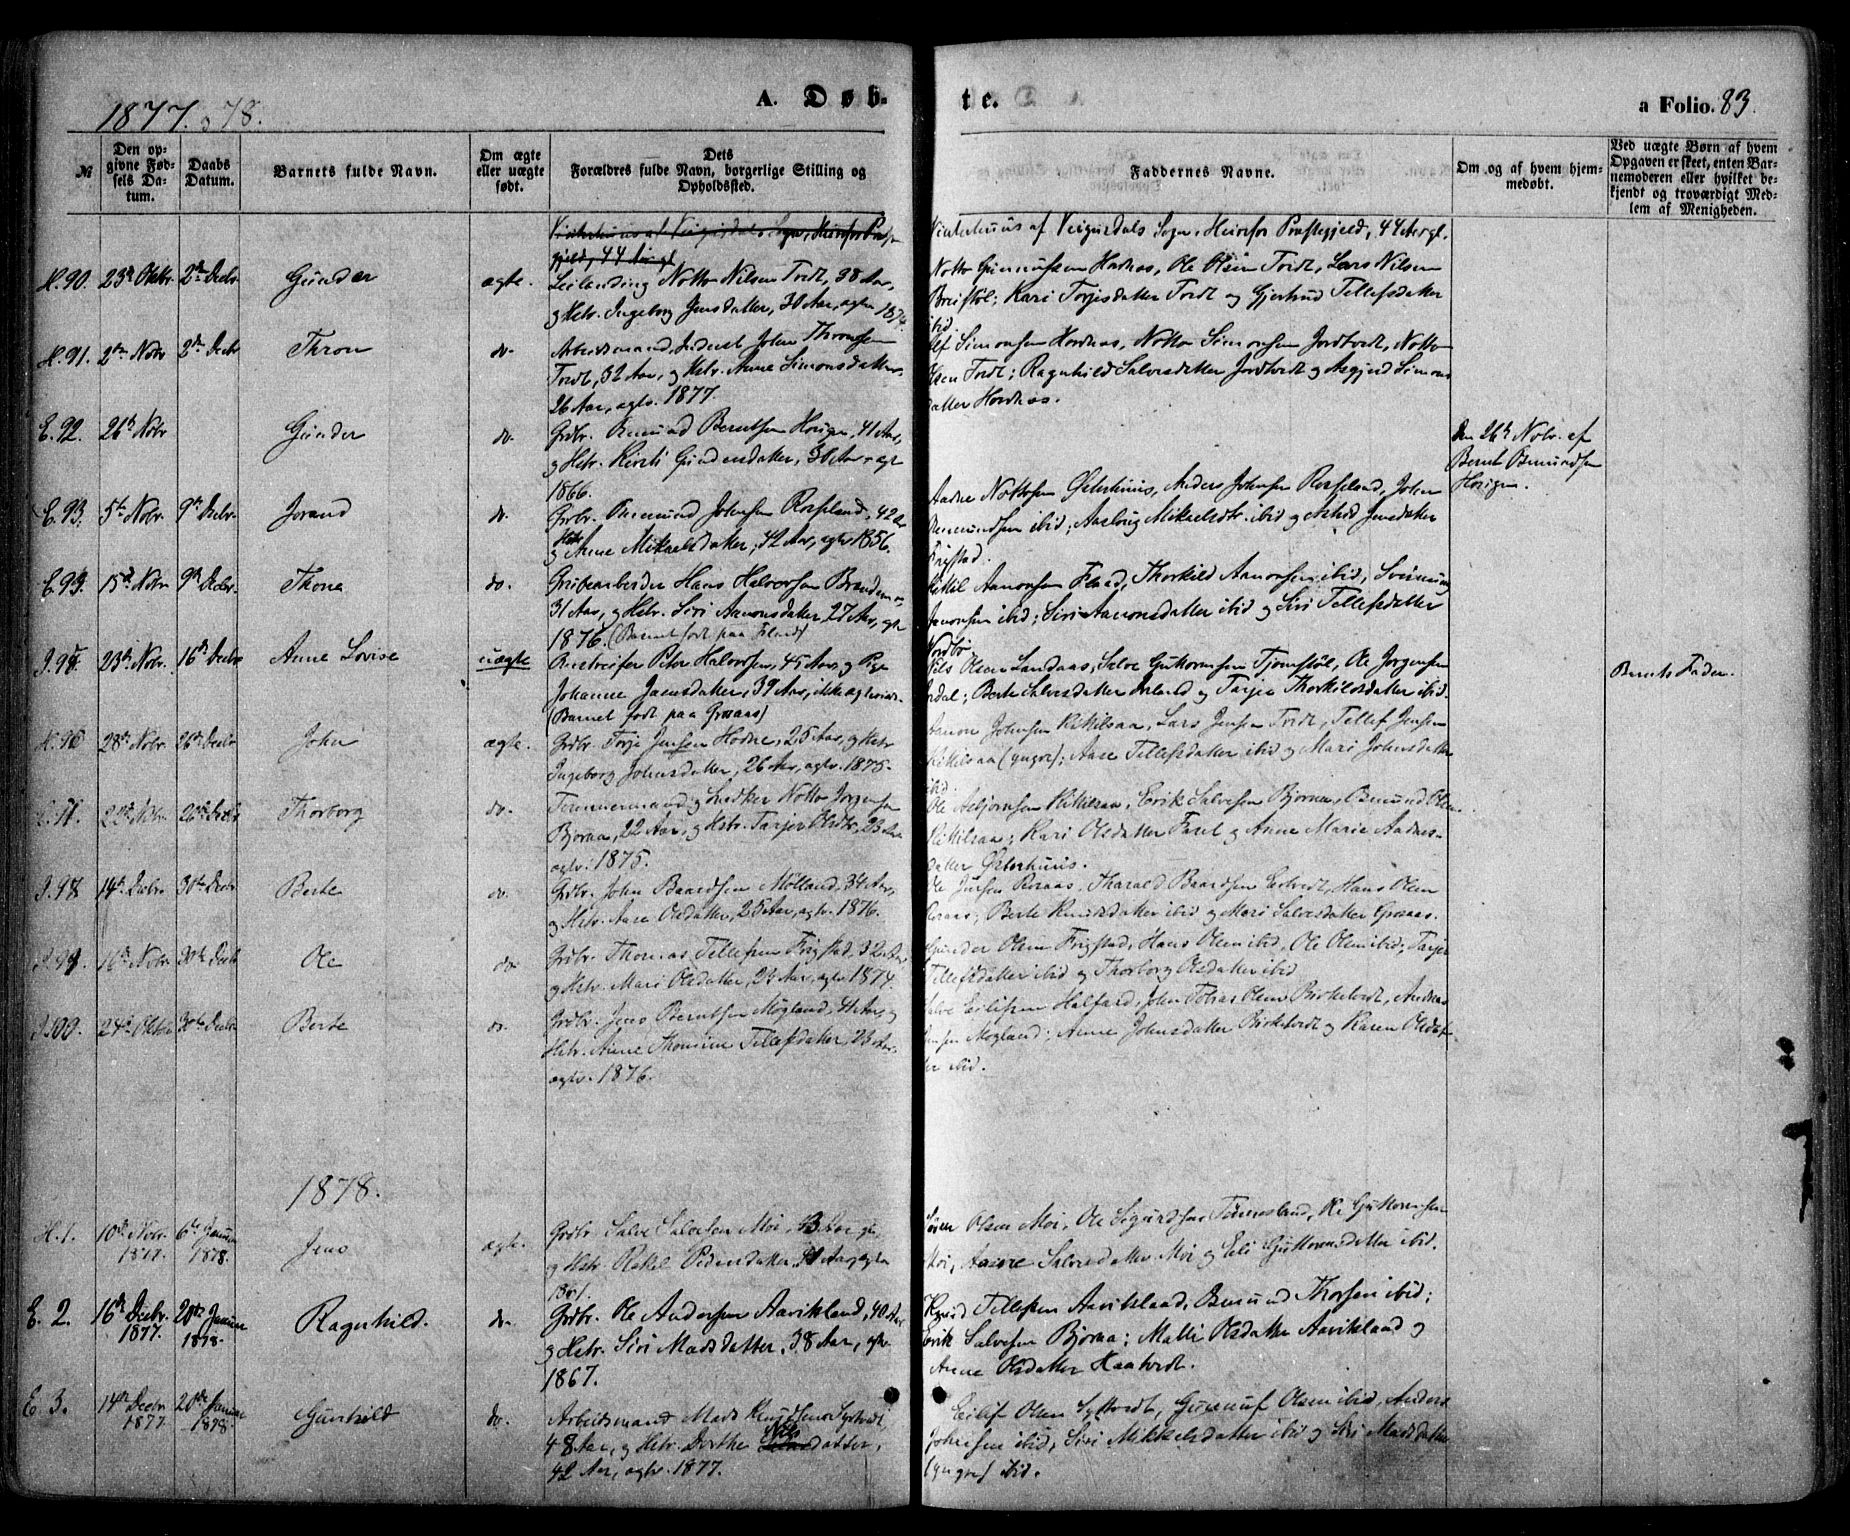 1877. og 78.
A. Døb-
te.
a Folio. 83.
№
Den op-
givne Fød-
sels Da-
tum.
Daabs
Datum.
Barnets fulde Navn.
Om ægte
eller uægte
født.
Dets
Forældres fulde Navn, borgerlige Stilling og
Opholdssted.
Faddernes Navne.
Om og af hvem hjem-
medøbt.
Ved uægte Børn af hvem
Opgaven er skeet, enten Bar-
nemoderen eller hvilket be-
kjendt og troværdigt Med-
lem af Menigheden.
Vinterhuus af Veigusdals Sogn, Heirefos Præstegjeld, 44 Aar gl.
H. 90. 23de Oktbr. 2den Decbr Gunder ægte. Leilending Notto Nilsen Tordt, 38 Aar,
og Hstr. Ingeborg Jensdatter, 30 Aar, agtv 1874.
Notto Gunnufsen Hodnos, Ole Olsen Tordt, Lars Nilsen
Breistöl; Kari Torjisdatter Tordt og Gjertrud Tellefsdatter
ibid.
H. 91. 2den Novbr 2den Decbr Thron do. Arbeidsmand, Inderst John Thronsen
Tordt, 32 Aar, og Hstr. Anne Simonsdatter,
26 Aar, agtv. 1877.
Simonsen Hordnos, Notto Simonsen Jordtvedt, Notto
Olsen Tordt; Ragnhild Salvesdatter Jordtvedt og Asgjerd Simons
datter Hordnos.
E. 92. 26de Novbr Gunder do. Grdbr. Osmund Berntsen Horigen, 41 Aar,
og Hstr. Kirsti Gundersdatter, 36 Aar, agt
1866.
Den 26de Novbr. af
Bernt Osmundsen
Horigen.
E. 93. 5te Novbr. 9de Decbr. Jorand do. Grdbr. Osmund Johnsen Rosseland, 42 Aar
og Hstr Anne Mikaelsdatter, 42 Aar, agtv 1856.
Aadne Nottosen Østerhuus, Anders Johnsen Rosseland, John
Osmundsen ibid; Aaslaug Mikaelsdtr. ibid og Astrid Jensdatter
Frigstad.
E. 94. 15de Novbr 9de Decbr. Thone do. Grubearbeider Hans Halvorsen
31 Aar, og Hstr. Siri Aanonsdatter, 27 Aar, agtv
1876. (Barnet født paa Flaad)
Kittil Aanonsen Flaad, Thorkild Aanonsen ibid,
Aanonsen ibid; Siri Aanonsdatter ibid og Siri Tellefsdatter
Nordbø
I. 95. 23de Novbr. 16de Decbr Anne Lovise uægte Peter Halvorsen, 45 Aar, og Pige
Johanne Jacensdatter, 39 Aar, ikke agtviede.
(Barnet født paa Graaas)
Nils Olsen Landaas, Salve Guttormsen Tjomstøl, Ole Jørgensen
Berte Salvesdatter og Tarjer Thorkildsdatter ibid.
Barnets Fader.
H. 96 28de Novbr. 26de Decbr John ægte. Grdbr. Torje Jensen Hodne, 25 Aar, og Hstr
Ingeborg Johnsdatter, 26 Aar, agtv. 1875.
Aanon Johnsen Kittilsaa, Lars Jensen Tordt, Tellef Jensen
Kittilsaa (yngre); Aase Tellefsdatter ibid og Mari Johnsdatter
ibid.
22de 26de Decbr Thorborg do. Tømmermand og Snedker Notto Jørgensen
Bjoraa, 22 Aar, og Hstr. Tarjer Olsdtr., 23 Aar
agtv. 1875.
Ole Asbjørnsen Kittilsaa, Erik Salvesen Bjoraa, Osmund Olsen
Kittilsaa; Kari Olsdatter Faret og Anne Marie Aadnes-
datter Østerhuus.
I. 98 14de Decbr 30te Decbr Berte do. Grdbr. John Baardsen Mølland, 34 Aar,
og Hstr. Aase Olsdatter, 25 Aar, agtv. 1876.
Ole Jensen Roraas, Tharald Baardsen Eietvedt, Hans Olsen
Roraas; Berte Knudsdatter ibid og Mari Salvesdatter Graaas.
I. 99. 16de Novbr 30te Decbr Ole do Grdbr. Thomas Tellefsen Frigstad, 32 Aar
og Hstr. Mari Olsdatter, 23 Aar, agtv 1874.
Gunder Olsen Frigstad, Hans Olsen ibid, Ole Olsen ibid; Tarjer
Tellefsdatter ibid og Thorborg Olsdatter ibid
I. 100. 24de Oktbr 30te Decbr Berte do. Grdbr. Jens Berntsen Møgland, 41 Aar, og
Hstr. Anne Thomine Tellefsdatter, 23 Aar,
agtv. 1876.
Salve Eilifsen Halfard, John Tobias Olsen Birketvedt, Andreas
Jensen Møgland; Anne Johnsdatter Birketvedt og Karen Olsdat-
ter ibid.
1878.
H. 1. 10de Novbr. 1877. 6te Januar 1878. Jens ægte. Grdbr. Salve Salvesen Moi, Aar gl.,
og Hstr. Rakel Pedersdatter, Aar, agtv
1861.
Søren Olsen Moi, Ole Sigurdsen Tønnesland, Ole Guttormsen
Moi, Aasne Salvesdatter Moi og Eli Guttormsdatter ibid.
E. 2. 16de Decbr. 1877. 20de Januar 1878. Ragnhild. do. Grdbr. Ole Andersen Aavitsland, 40 Aar
og Hstr. Siri Madsdatter, 38 Aar, agtv.
1867.
Tellefsen Aavitslaad, Osmund Thorsen ibid;
Erik Salvesen Bjoraa; Malli Olsdatter Aavitsland og
Anne Olsdatter Haatvedt.
E. 3. 14de Decbr 1877. 20de Januar 1878. Gunhild do. Arbeidsmand Mads Knudsen Sytvedt,
48 Aar, og Hstr. Dorthe Nilsdatter,
42 Aar, agtv. 1877.
Eilif Olsen Syttvedt, Gunnuf Olsen ibid, Anders
Johnsen ibid, Siri Mikkelsdatter ibid og Siri Madsdatter
(yngre) ibid.